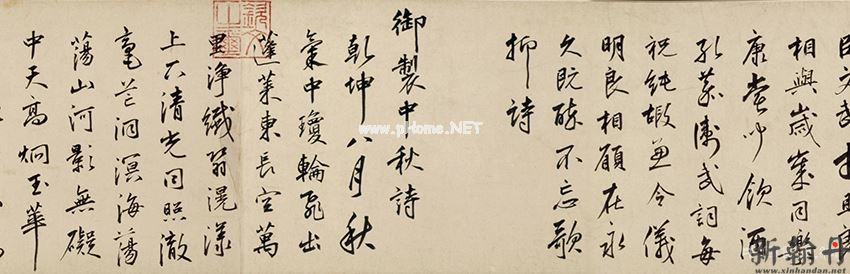 臣文武才
相與歲寒同
康飲酒
衛武詞每
祝純嘏兼令儀
明良相顧在永
久既醉不忘歌
抑詩
御製中秋詩
乾坤八月秋
氣中瓊輪飛出
蓬萊東長空萬
里淨纖翳滉漾
上下清光同照徹
毫芒洞溟海蕩
蕩山河影無礙
中天高炯玉華
www.pHome.NET
新翰丹
www.xinhandan.net